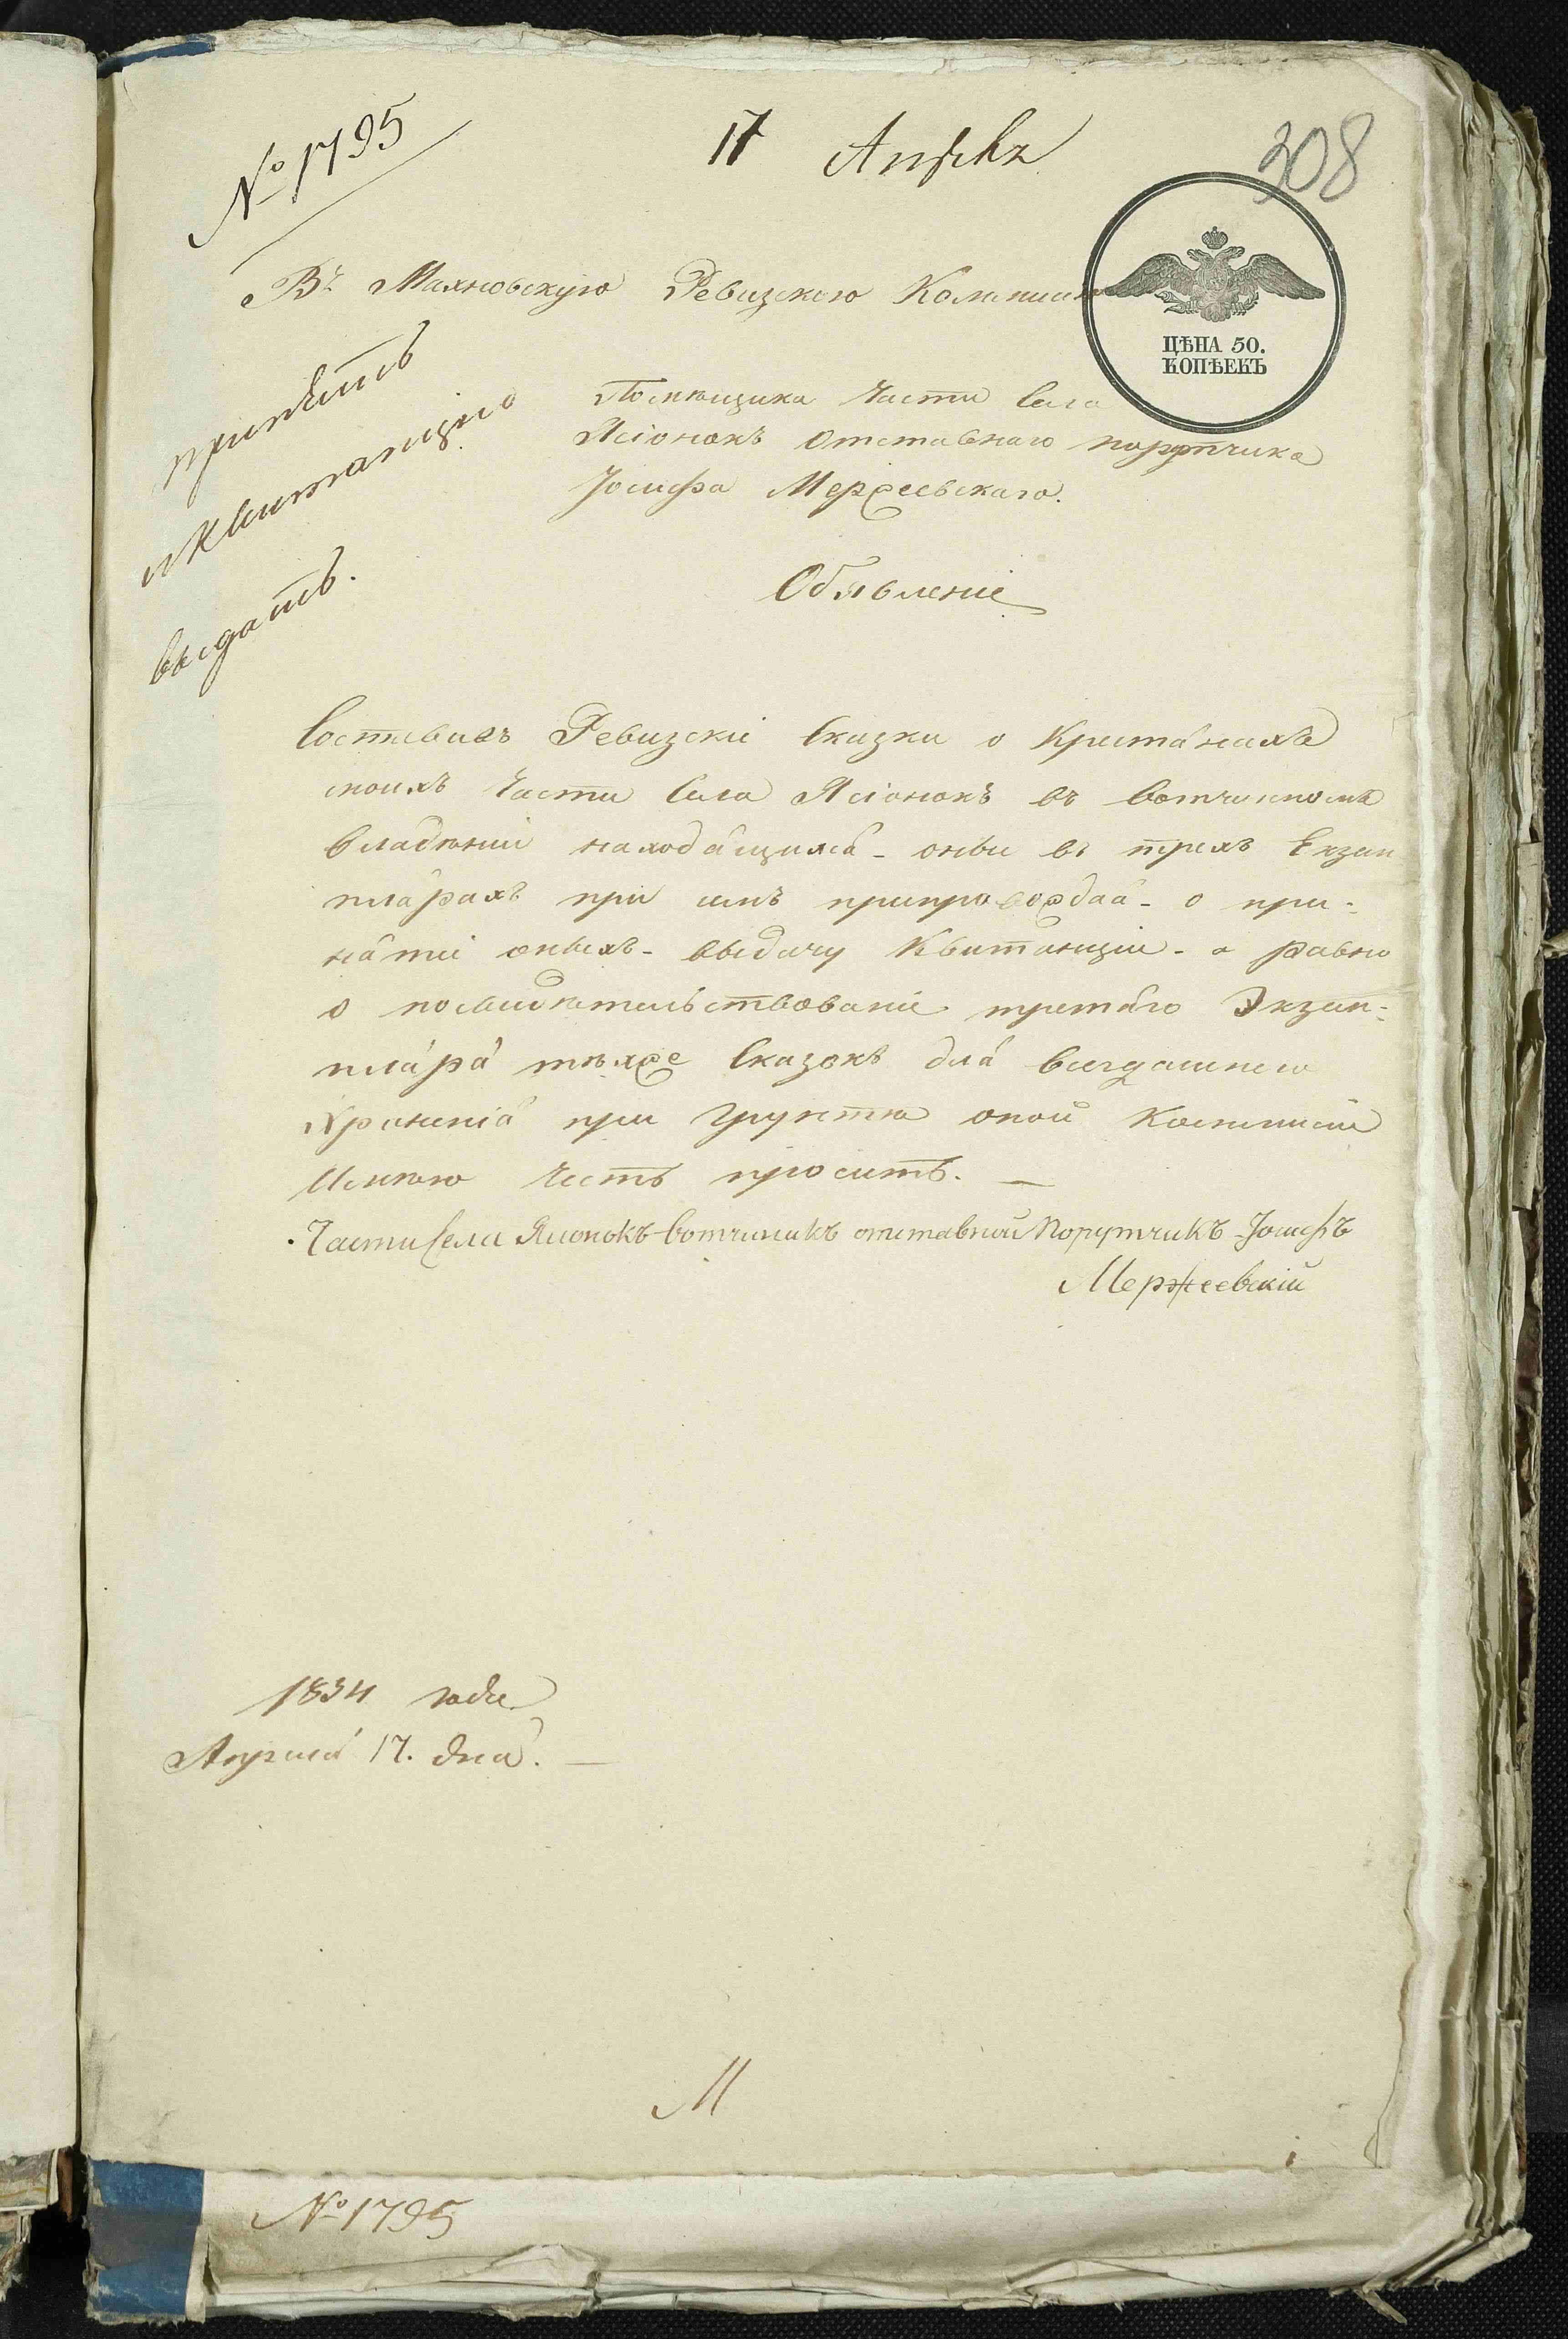 № 1795
17 Апрѣл
308
Въ Махновскую Ревизскою Коммисию
ЦѢНА 50.
КОПѢЕКЪ
принѣть
и квитанцию
выдать.
Помѣщика Части Села
Ясіонокъ Отставнаго порутчика
Іосифа Мержеевскаго.
Объявленіе
Составивъ Ревизскіе Сказки о Крестянахъ
моихъ Части Села Ясіонокъ въ вотчинномъ
владѣніи находящихся - оныи въ трехъ Екзем
плярахъ при семъ припровождая - о при-
нятіи оныхъ - выдачу Квитанции - а равно
о посвидѣтельствованіе третяго Экзем-
пляра тѣхже Сказокъ для всегдашнего
Храненія при Грунтѣ оной Коммисии
Имѣю честь просить. —
Части Села Ясионокъ вотчинникъ отставной Порутчикъ Іосифъ
Мержеевскій
1834 года
Апреля 17. дня. —
М
№ 1795